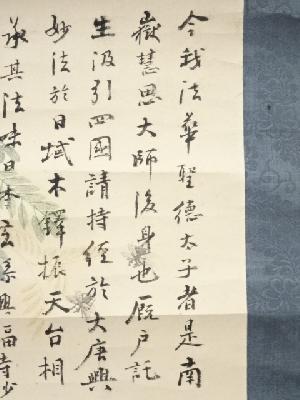 今我法華聖德太子者是南
嶽慧思大師後身也厩戸託
生汲引四國請持經於大唐興
妙法於日域木鐸振天台相
承其法味日本玄孫興福寺